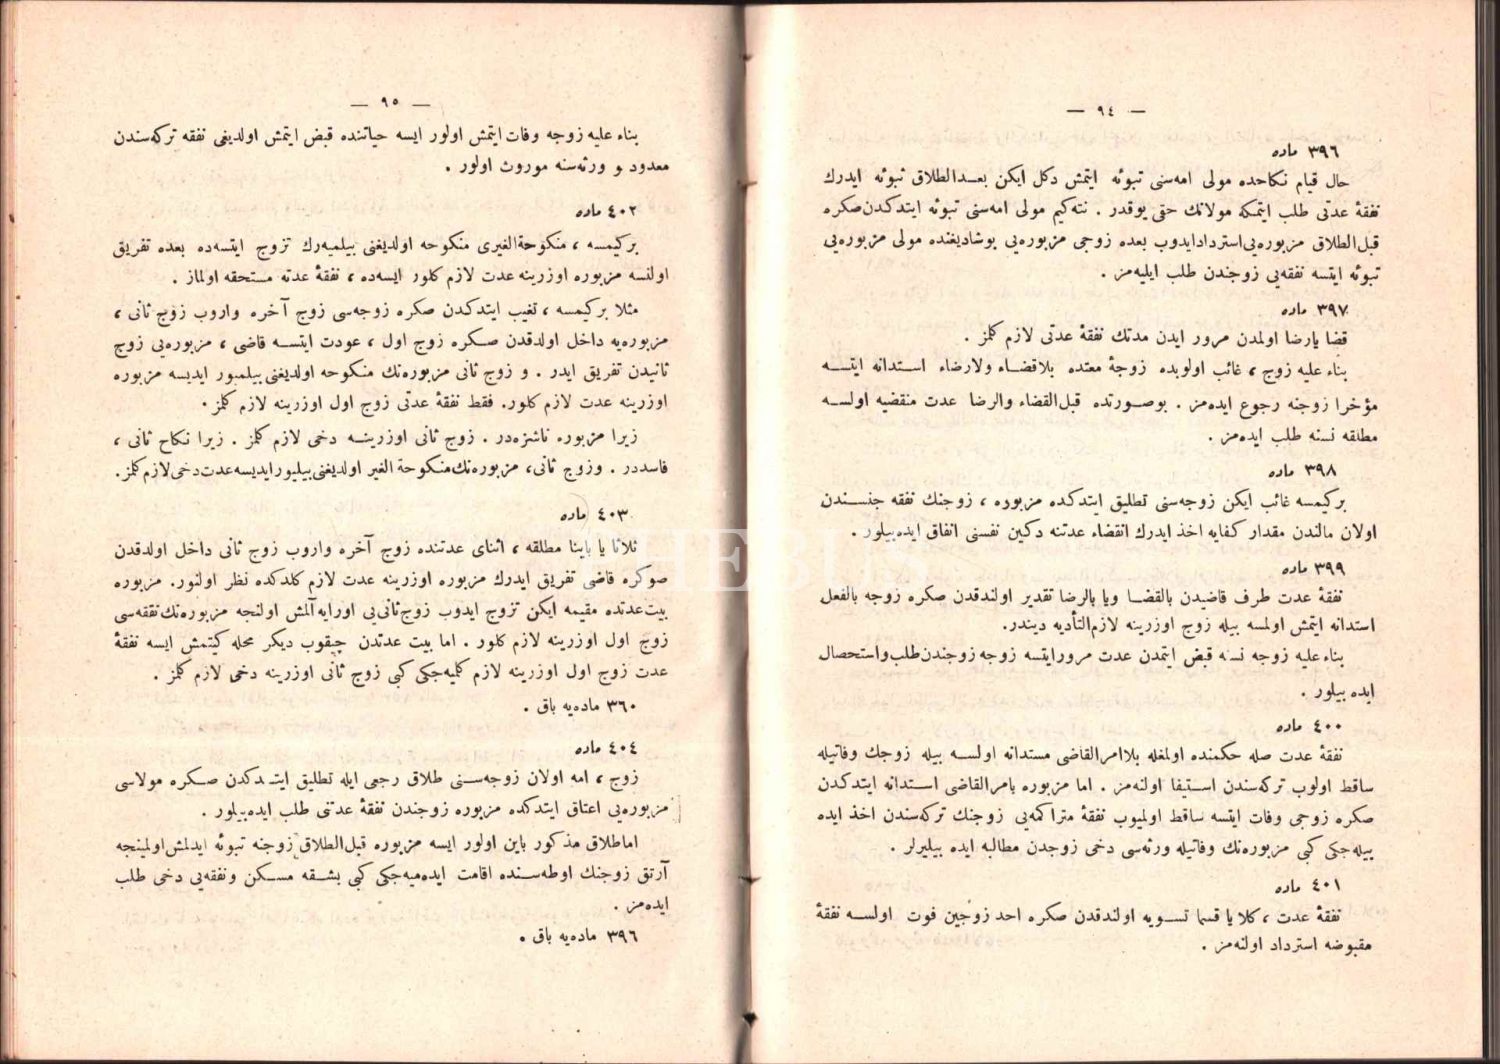 — ٩٤ —
٣٩٦ ماده
حال قيام نكاحده مولى امه‌سنى تبوئه ايتمش دكل ايكن بعدالطلاق تبوئه ايدرك
نفقۀ عدتى طلب ايتمكه مولانك حقى يوقدر . نته‌كيم مولى امه‌سنى تبوئه ايتدكدن‌صكره
قبل‌الطلاق مزبوره‌يى‌استردادايدوب بعده زوجى مزبوره‌يى بوشاديغنده مولى مزبوره‌يى
تبوئه ايتسه نفقه‌يى زوجندن طلب ايليه‌مز .
٣٩٧ ماده
قضا يارضا اولمدن مرور ايدن مدتك نفقۀ عدتى لازم كلمز .
بناء عليه زوج ، غائب اولوبده زوجۀ معتده بلاقضاء ولارضاء استدانه ايتسه
مؤخرا زوجنه رجوع ايده‌مز . بوصورتده قبل‌القضاء والرضا عدت منقضيه اولسه
مطلقه نسنه طلب ايده‌مز .
٣٩٨ ماده
بركيمسه غائب ايكن زوجه‌سنى تطليق ايتدكده مزبوره ، زوجنك نفقه جنسندن
اولان مالندن مقدار كفايه اخذ ايدرك انقضاء عدتنه دكين نفسنى انفاق ايده‌بيلور .
٣٩٩ ماده
نفقۀ عدت طرف قاضيدن بالقضا ويا بالرضا تقدير اولندقدن صكره زوجه بالفعل
استدانه ايتمش اولمسه بيله زوج اوزرينه لازم‌التأديه ديندر.
بناءعليه زوجه نسنه قبض ايتمدن عدت مرورايتسه زوجه زوجندن‌طلب‌واستحصال
ايده بيلور .
٤٠٠ ماده
نفقۀ عدت صله حكمنده اولمغله بلاامرالقاضى مستدانه اولسه بيله زوجك وفاتيله
ساقط اولوب تركه‌سندن استيفا اولنه‌مز . اما مزبوره بامرالقاضى استدانه ايتدكدن
صكره زوجى وفات ايتسه ساقط اولميوب نفقۀ متراكمه‌يى زوجنك تركه‌سندن اخذ ايده
بيله‌جكى كبى مزبوره‌نك وفاتيله ورثه‌سى دخى زوجدن مطالبه ايده بيليرلر .
٤٠١ ماده
نفقۀ عدت ، كلا يا قسما تسويه اولندقدن صكره احد زوجين فوت اولسه نفقۀ
مقبوضه استرداد اولنه‌مز .
— ٩٥ —
بناء عليه زوجه وفات ايتمش اولور ايسه حياتنده قبض ايتمش اولديغى نفقه تركه‌سندن
معدود و ورثه‌سنه موروث اولور .
٤٠٢ ماده
بركيمسه ، منكوحةالغيرى منكوحه اولديغنى بيلميه‌رك تزوج ايتسه‌ده بعده تفريق
اولنسه مزبوره اوزرينه عدت لازم كلور ايسه‌ده ، نفقۀ عدته مستحقه اولماز .
مثلا بركيمسه ، تغيب ايتدكدن صكره زوجه‌سى زوج آخره واروب زوج ثانى ،
مزبوره‌يه داخل اولدقدن صكره زوج اول ، عودت ايتسه قاضى ، مزبوره‌يى زوج
ثانيدن تفريق ايدر . و زوج ثانى مزبوره‌نك منكوحه اولديغنى بيلميور ايديسه مزبوره
اوزرينه عدت لازم كلور. فقط نفقۀ عدتى زوج اول اوزرينه لازم كلمز .
زيرا مزبوره ناشزه‌در . زوج ثانى اوزرينه دخى لازم كلمز . زيرا نكاح ثانى ،
فاسددر . وزوج ثانى، مزبوره‌نك‌منكوحة الغير اولديغنى‌بيليورايديسه‌عدت‌دخى‌لازم‌كلمز.
٤٠٣ ماده
ثلاثا يا باينا مطلقه ، اثناى عدتنده زوج آخره واروب زوج ثانى داخل اولدقدن
صوكره قاضى تفريق ايدرك مزبوره اوزرينه عدت لازم كلدكده نظر اولنور. مزبوره
بيت‌عدتده مقيمه ايكن تزوج ايدوب زوج‌ثانى‌يى اورايه‌آلمش اولنجه مزبوره‌نك‌نفقه‌سى
زوج اول اوزرينه لازم كلور . اما بيت عدتدن چيقوب ديكر محله كيتمش ايسه نفقۀ
عدت زوج اول اوزرينه لازم كلميه‌جكى كبى زوج ثانى اوزرينه دخى لازم كلمز .
٣٦٠ ماده‌يه باق .
٤٠٤ ماده
زوج ، امه اولان زوجه‌سنى طلاق رجعى ايله تطليق ايتدكدن صكره مولاسى
مزبوره‌يى اعتاق ايتدكده مزبوره زوجندن نفقۀ عدتى طلب ايده‌بيلور .
اماطلاق مذكور باين اولور ايسه مزبوره قبل‌الطلاق زوجنه تبوئه ايدلمش‌اولمينجه
آرتق زوجنك اوطه‌سنده اقامت ايده‌ميه‌جكى كبى بشقه مسكن ونفقه‌يى دخى طلب
ايده‌مز .
٣٩٦ ماده‌يه باق .